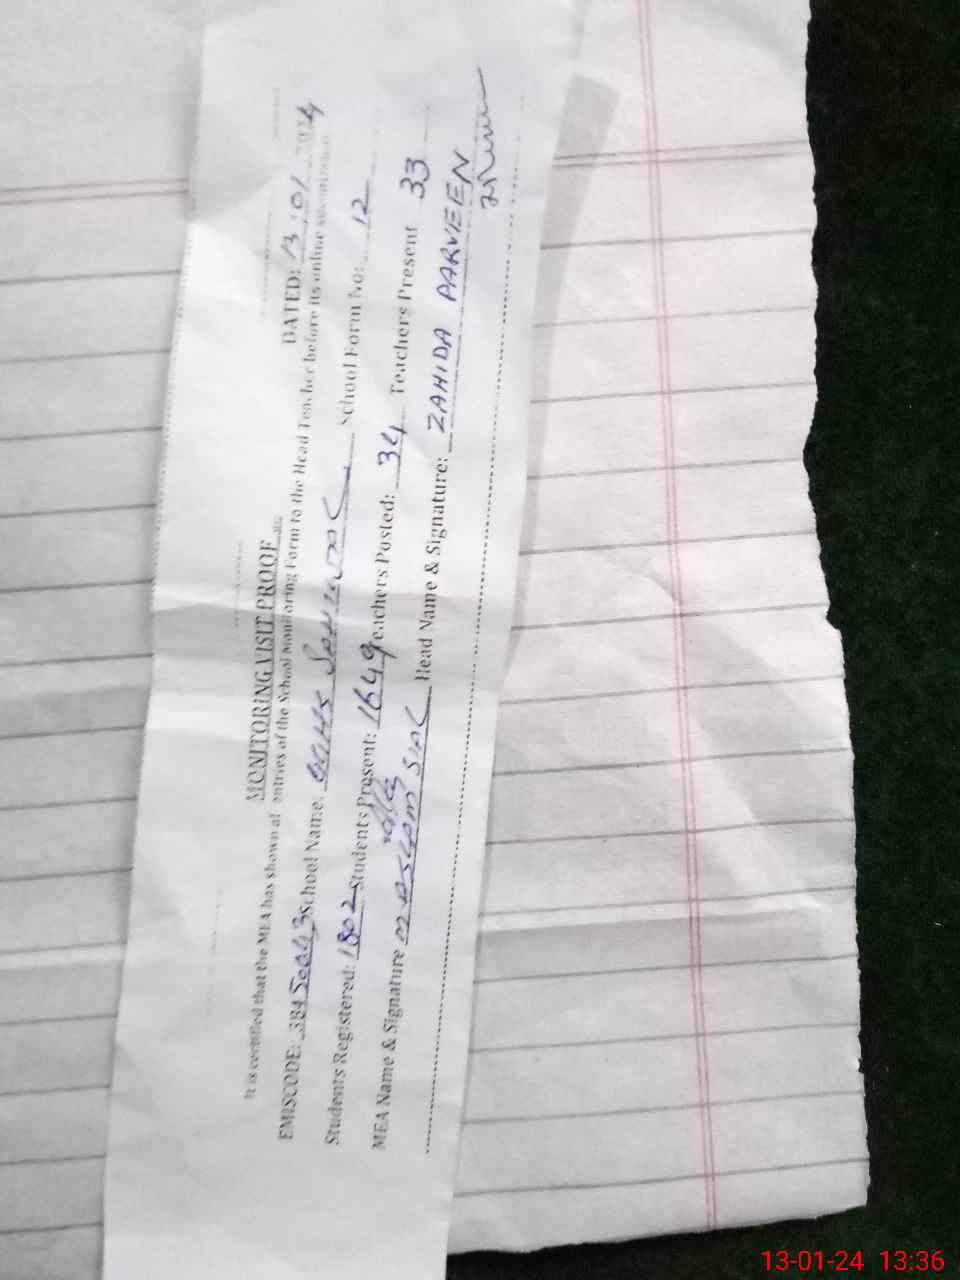 MONITORING VISIT PROOF
DATED: 13.01.2024
It is certified that the MEA has shown all entries of the School Monitoring Form to the Head Teacher before its online submission
EMISCODE: 38450043 School Name: GGHS School Form No: 12
Students Registered: 1802 Students Present: 1649 Teachers Posted: 34 Teachers Present 33
MEA Name & Signature M ASLAM SIAL Head Name & Signature: ZAHIDA PARVEEN
13-01-24 13:36